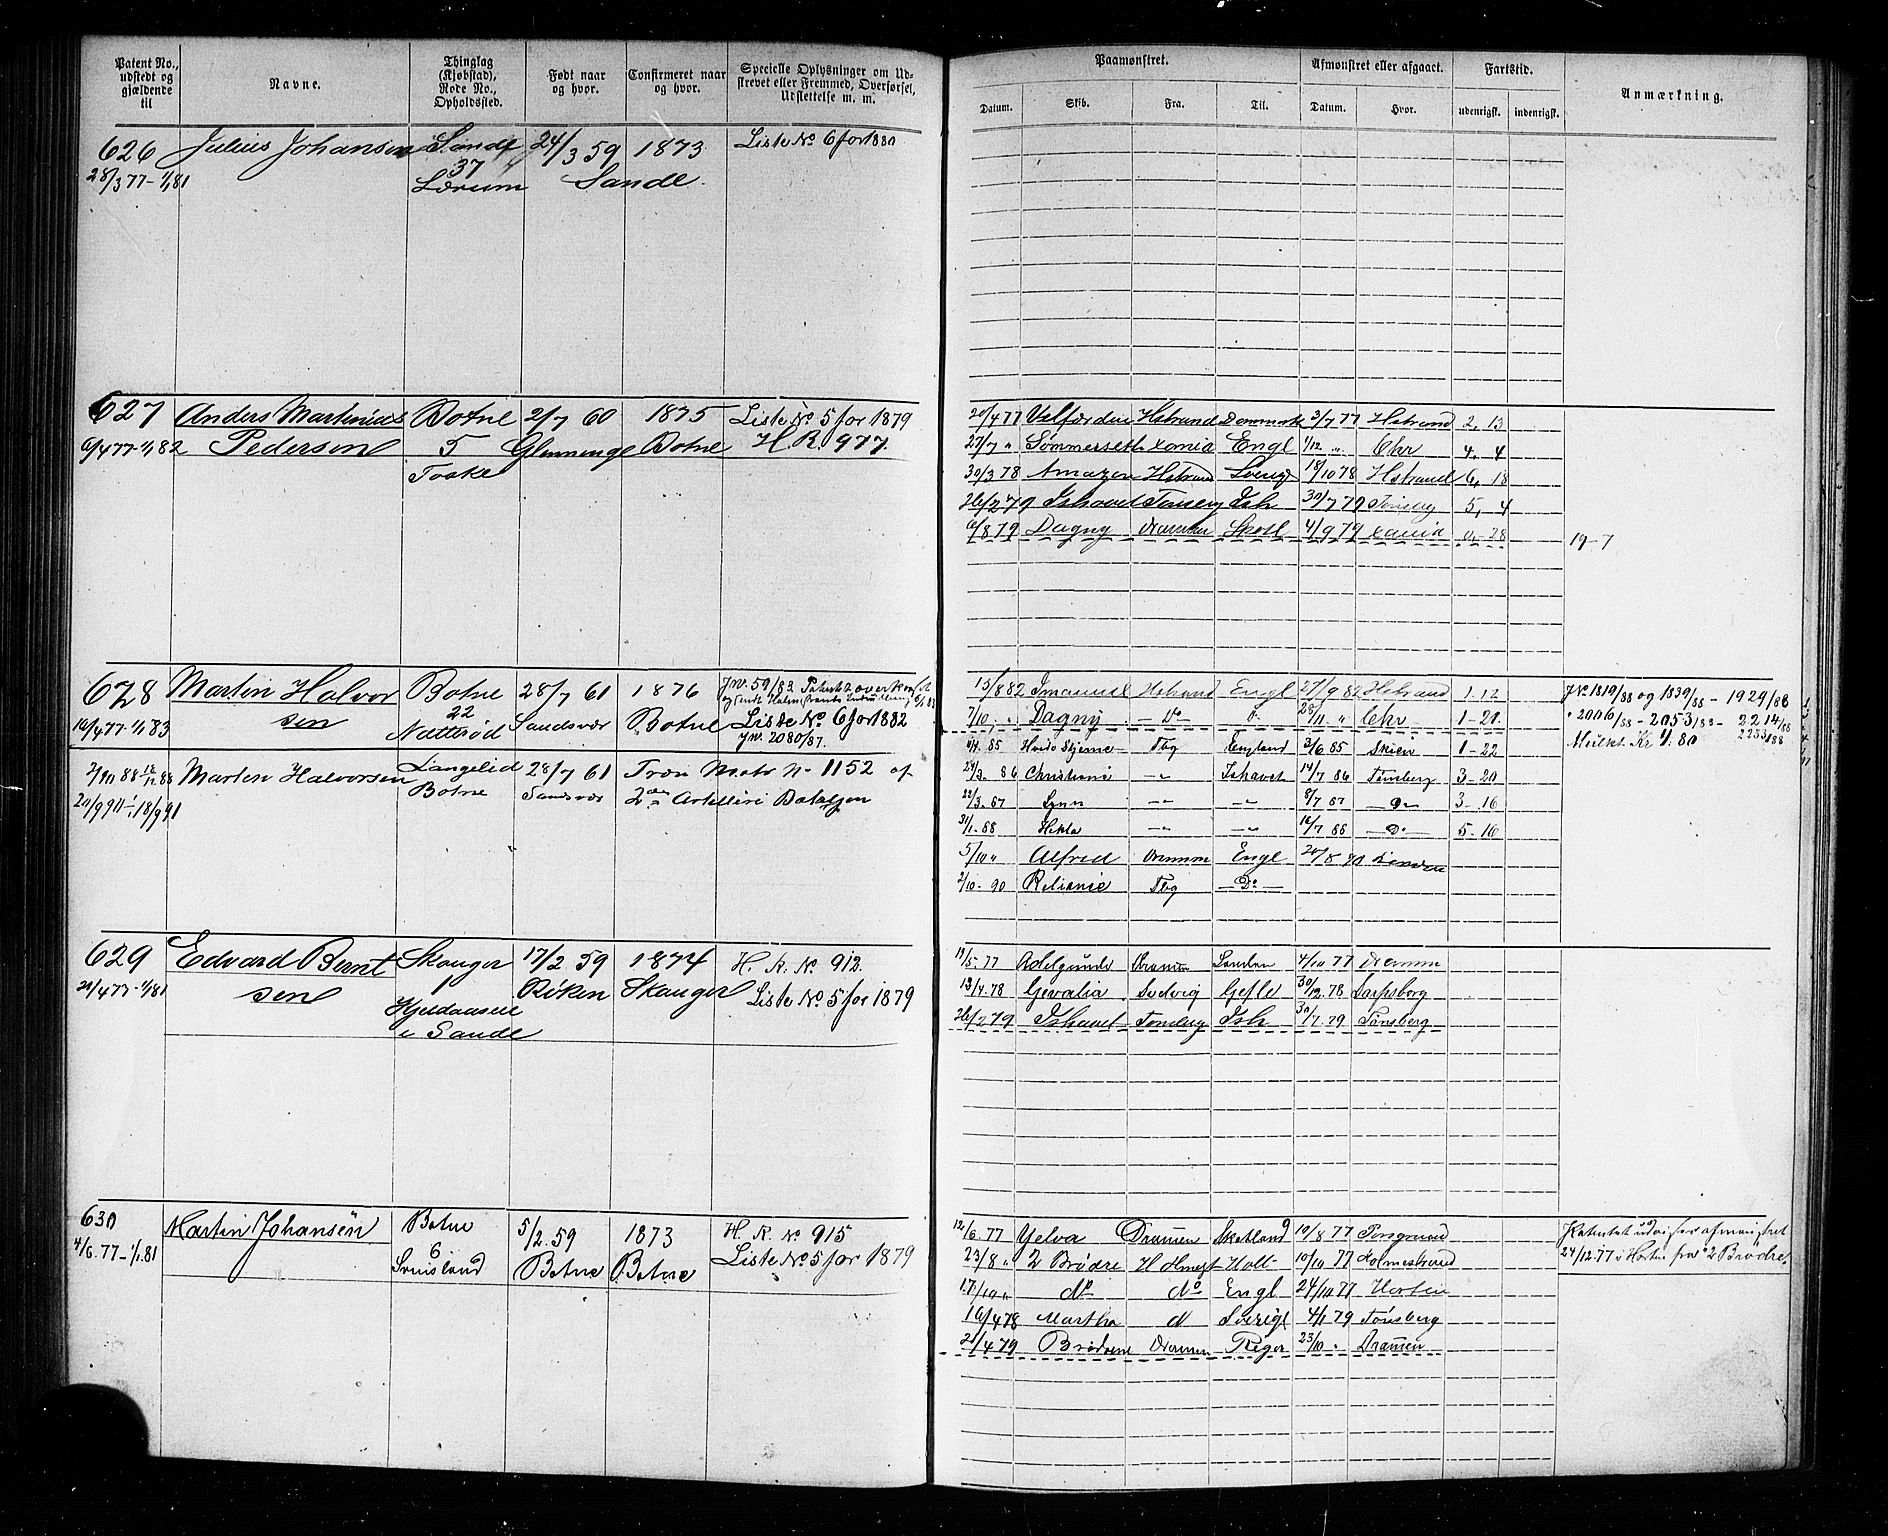 Patent No., udstedt og gjældende til
Navne.
Thinglag (Kjøbstad), Rode No., Opholdssted.
Født naar og hvor.
Confirmeret naar og hvor.
Specielle Oplysninger om Udstrevet eller Fremmed, Overførsel, Udslettelse m. m.
Paamønstret.
Datum. Skib. Fra. Til.
Afmønstret eller afgaaet.
Datum. Hvor.
Fartstid.
udenrigsk. indenrigsk.
Anmærkning.
626 Julius Johansen Sande 24/3 59 1873 Liste No 6 for 1880
28/3 77 - 1/1 81 37 Sande
Lærum
627 Anders Martinius Botne 2/7 60 1875 Liste No 5 for 1879
6/4 77 - 1/1 82 Pedersen 5 Glemminge Botne H. R. 977.
Toske
20/4 77 Velfærden Hstrand Danmark 3/7 77 Hstrand 2, 13
27/7 " Sømmerseth xania Engl 1/12 " Chr 4, 4
30/3 78 Amazon Hstrand Sverig 18/10 78 Hstrand 6, 18
26/2 79 Ishavet Tønsberg Ish 30/7 79 Tønsbg 5, 4
6/8 79 Dagny Drammen Skotl 4/9 79 xania 0, 28
19-7
628 Martin Halvor Botne 28/7 61 1876 J No. 59/83 Patentet
sen 22 Sandsvær Botne Liste No. 6 for 1882
16/4 77 - 1/1 83 Nætterød J No. 2080/87.
15/8 82 Imanuel Hstrand Engl 27/9 82 Hstrand 1-12
7/10 " Dagny - Do - Do 28/11 " Chr 1-21
85 Hvide Stjerne Tbg England 3/6 85 Skien 1-22
24/3 86 Christiane -"- Ishavet 14/7 86 Tønsberg 3-20
22/3 87 -"- -"- 8/7 87 -Do- 3-16
31/1 88 Hekla -"- -"- 16/7 88 -Do- 5-16
5/10 " Alfred Dramm Engl
2/10 - 90 Tbg - Do -
J No 1819/88 og 1839/88 - 1929/88
" 2006/88 - 2053/88 - 2214/88
2233/88
Mulkt Kr 4.80
Martin Halvorsen Langelid 28/7 61 No 1152 af
Botne Sandsvær 2den Artilleri Bataljon
629 Edvard Bernt Skouger 17/2 59 1874 H. R. No 912.
21/4 77 - 1/1 81 sen Røken Skouger Liste No. 5 for 1879
Kjeldaasen
i Sande
19/5 77 Adelgunde Dramm London 4/10 77 Dramm
13/4 78 Gevalia Gefle 30/12 78 Sarpsborg
26/2 79 Ishavet Tønsberg Ish 30/7 79 Tønsberg
630 Martin Johansen Botne 5/2 59 1873 H. R. No 915
4/6 77 - 1/1 81 6 Botne Botne Liste No. 5 for 1879
12/6 77 Yelva Drammen Skotland 19/8 77 Porsgrund
23/8 " 2 Brødre Holl 10/10 77 Holmestrand
17/10 " do do Engl 24/10 77 Horten
16/4 78 Martha d Sverige 4/1 79 Tønsberg
21/4 79 Brødrene Drammen Riga 23/10 " Drammen
Patentet udviser afmønstret
24/12 77 i Horten fra "2 Brødre"